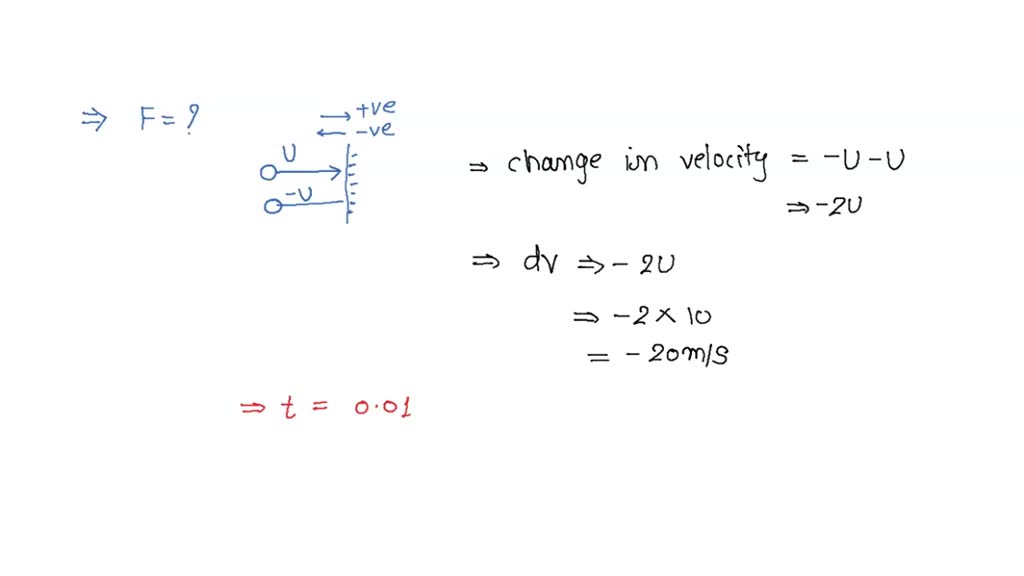 ⇒ F = ?
→ +ve
← -ve
U
-U
⇒ change in velocity = -U - U
⇒ -2U
⇒ dv ⇒ - 2U
⇒ -2 × 10
= - 20m/s
⇒ t = 0.01